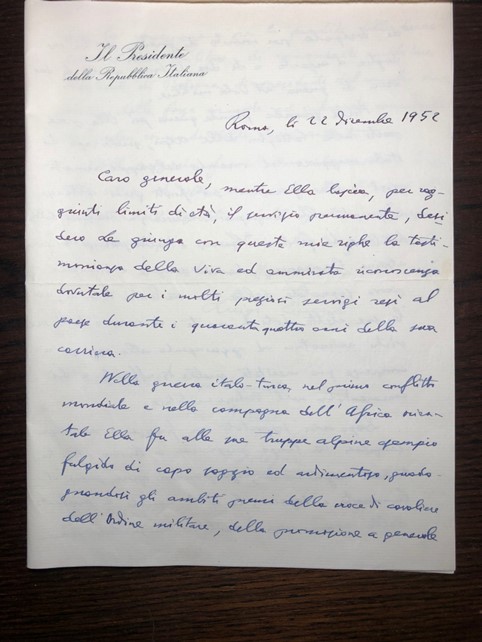 Il Presidente
della Repubblica Italiana
Roma, li 22 dicembre 1952
Caro generale, mentre Ella lascia, per rag-
giunti limiti di età, il servizio permanente, desi
dero Le giunga con queste mie righe la testi-
monianza della viva ed ammirata riconoscenza
dovutale per i molti preziosi servigi resi al
paese durante i quarantaquattro anni della sua
carriera.
Nella guerra italo-turca, nel primo conflitto
mondiale e nella campagna dell'Africa orien-
tale Ella fu alle sue truppe alpine esempio
fulgido di capo saggio ed ardimentoso, guada-
gnandosi gli ambiti premi della croce di cavaliere
dell'Ordine militare, della promozione a generale